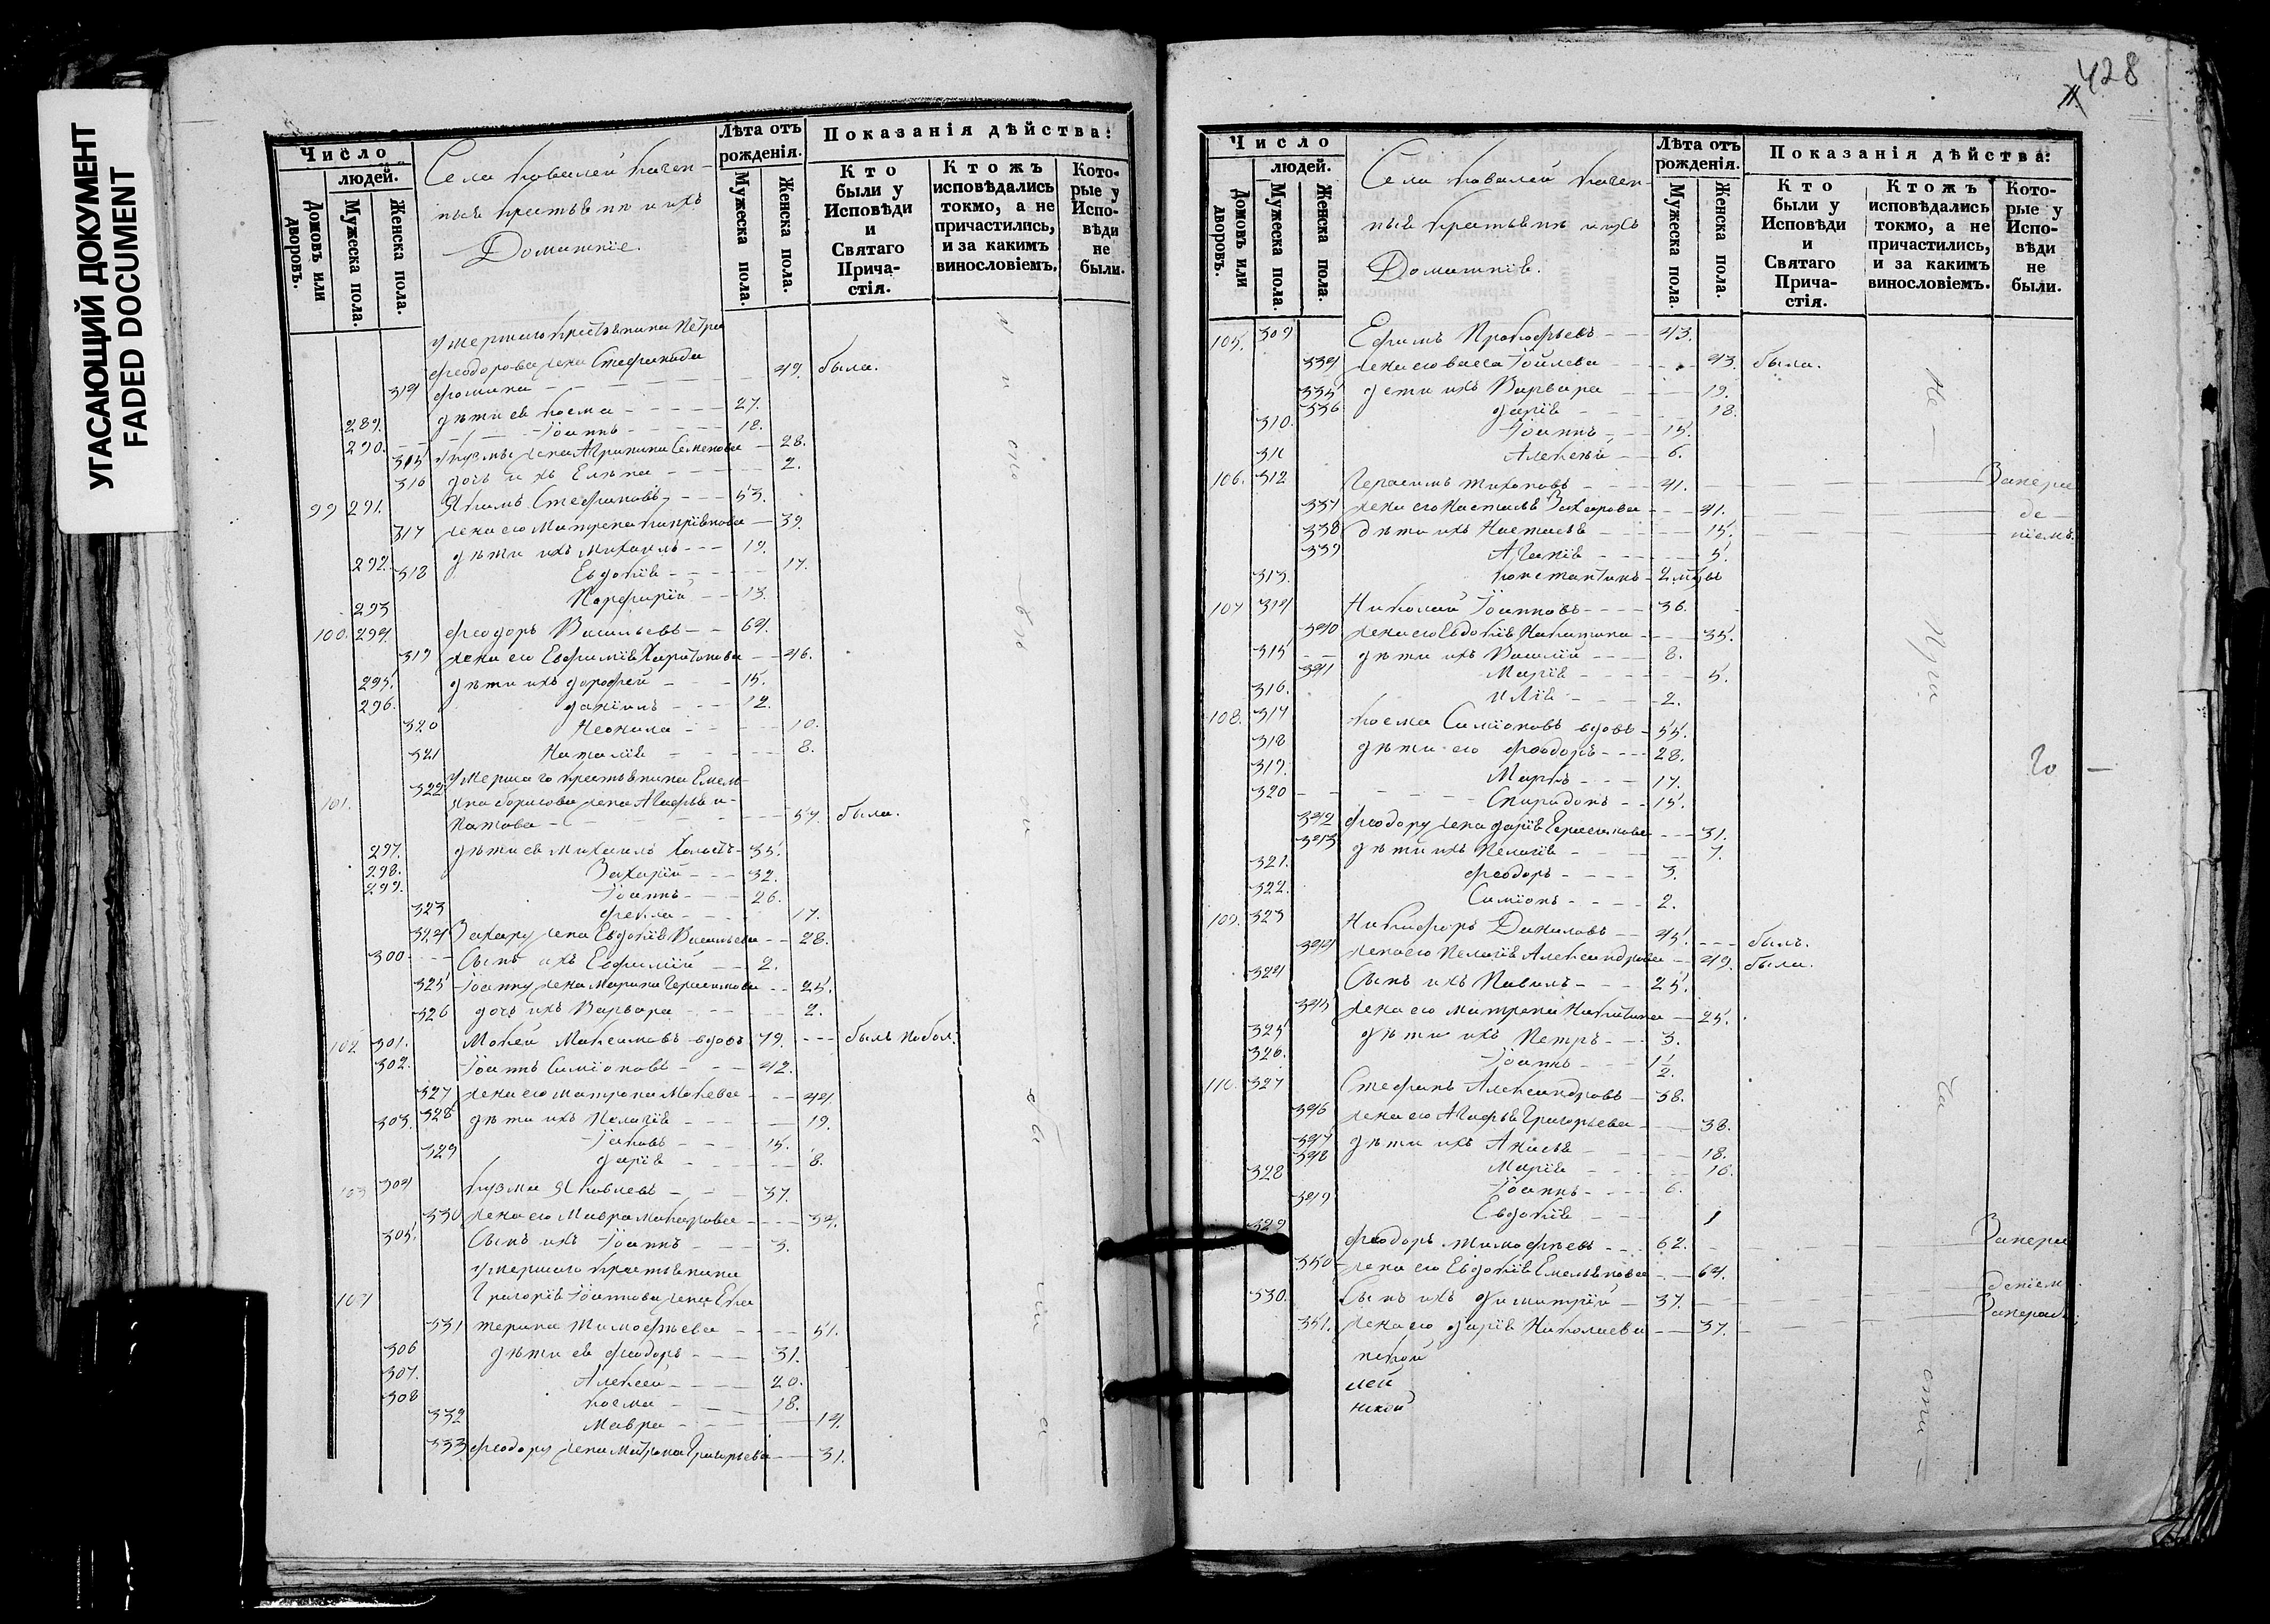 УГАСАЮЩИЙ ДОКУМЕНТ
FADED DOCUMENT
Число
людей.
Домовъ или дворовъ.
Мужеска пола.
Женска пола.
Села
Домашніе.
Лѣта отъ рожденія.
Мужеска пола.
Женска пола.
Показанія дѣйства:
Кто были у Исповѣди и Святаго Прича-стія.
Ктожъ исповѣдались токмо, а не причастились, и за какимъ винословіемъ.
Кото-рые у Испо-вѣди не были.
умершаго крестьянина Петра
Феодорова жена Стефанида
314 Фомина 49. была.
289. дѣти ея Косма 27.
290. Іоаннъ 18.
315 Кузмы жена Агрипина Семенова 28.
316 дочь ихъ Елена 2.
99 291. Якимъ Стефановъ 53.
317 жена его Матрена 39.
292. дѣти ихъ Михаилъ 19.
318 Евдокія 17.
293 Порфирій 13.
100. 294. Феодоръ Васильевъ 64.
319 жена его Евфимія Харитонова 46.
295. дѣти ихъ Дорофей 15.
296. Даніилъ 12.
320 Неонила 10.
321 Наталія 8.
322 умершаго крестьянина Емель-
101. яна Борисова жена Агафья И-
патова 57. была.
297. дѣти ея Михаилъ Холостъ 35.
298. Захарій 32.
299. Іоаннъ 26.
323 Фекла 17.
324 Захару жена Евдокія Васильева 28.
300 Сынъ ихъ Евфимій 2.
325 Іоанну жена Марина Герасимова 25.
326 дочь ихъ Варвара 2.
102 301. Мокей Максимовъ вдовъ 79. былъ
302. Іоаннъ Симіоновъ 42.
327 жена его Матрона Мокеева 44.
303. 328 дѣти ихъ Пелагія 19.
Іаковъ 15.
329 Дарія 8.
103 304 Кузма Яковлевъ 37.
330 жена его Мавра Макарова 34.
305. Сынъ ихъ Іоаннъ 3.
умершаго крестьянина
104 Григорія Іоаннова жена Ека
331 терина Тимофѣева 51.
306 дѣти ея Феодоръ 31.
307. Алексей 20.
308 Косма 18.
332 Мавра 14.
333 Феодору жена Матрона Григорьева 31.
428
Число
людей.
Домовъ или дворовъ.
Мужеска пола.
Женска пола.
Села
Домашніе.
Лѣта отъ рожденія.
Мужеска пола.
Женска пола.
Показанія дѣйства:
Кто были у Исповѣди и Святаго Прича-стія.
Ктожъ исповѣдались токмо, а не причастились, и за какимъ винословіемъ.
Кото-рые у Испо-вѣди не были.
105. 309 Ефимъ Прокофьевъ 43.
334 жена его Васса Іоилева 43. была.
335 дети ихъ Варвара 19.
336 Дарія 18.
310. Іоаннъ 15.
311 Алексѣй 6.
106. 312 Герасимъ Тихоновъ 41.
337 жена его Настасья Захарова 41.
338 дѣти ихъ Настасья 15.
339 Агапія 5.
313. Константинъ
107 314 Николай Іоанновъ 36.
340 жена его Евдокія Никитина 35.
315 дѣти ихъ Василій 8.
341 Марія 5.
316. Илія 2.
108. 317 Косма Симіоновъ вдовъ 55.
318 дѣти его Феодоръ 28.
319. Маркъ 17.
320 Спиридонъ 15.
342 Феодору жена Дарія Герасимова 31.
343 дѣти ихъ Пелагія 7.
321. Феодоръ 3.
322. Симіонъ 2.
109. 323 Никифоръ Даниловъ 45. былъ.
344 жена его Пелагія Александрова 49. была.
324 Сынъ ихъ Павелъ 25.
345 жена его Матрена Никитина 25.
325 дѣти ихъ Петръ 3.
326. Іоаннъ 1½
110. 327 Стефанъ Александровъ 38.
346 жена его Агафья Григорьева 38.
347 дѣти ихъ Анисья 18.
348 Марія 16.
328 Іоаннъ 6.
349 Евдокія 1
329 Феодоръ Тимофѣевъ 62.
350 жена его Евдокія Емельянова 64.
330. Сынъ ихъ Димитрій 37.
351. жена его Дарія Николаева 37.